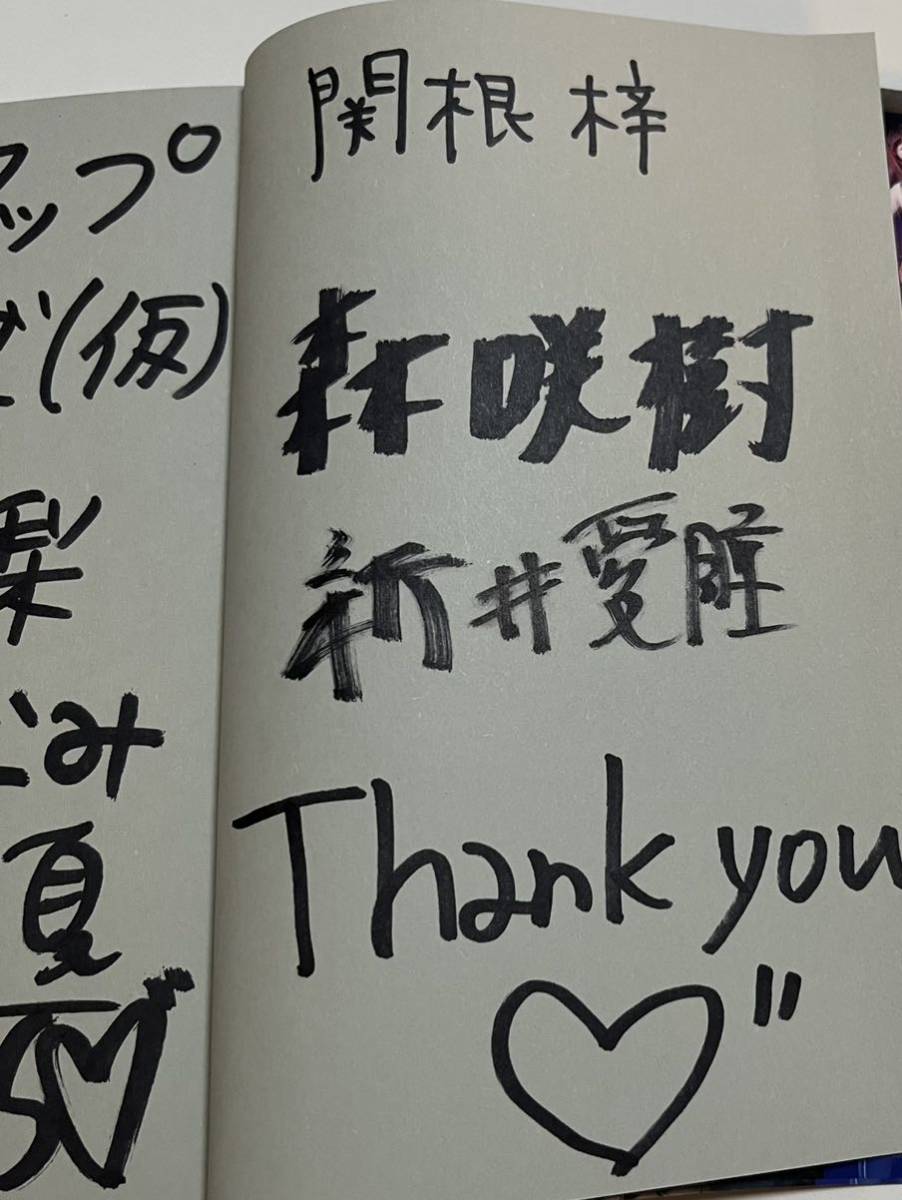 アップ
(仮)
梨
み
夏
関根梓
森咲樹
新井愛瞳
Thank you